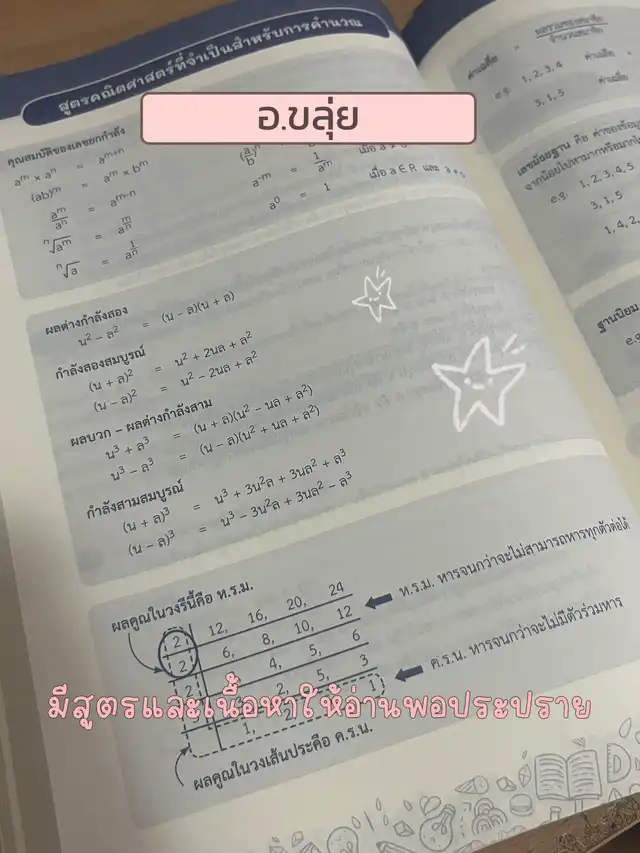 สูตรคณิตศาสตร์ที่จำเป็นสำหรับการคำนวณ
อ.ขลุ่ย
คุณสมบัติของเลขยกกำลัง
aᵐ x aⁿ = aᵐ⁺ⁿ
(ab)ᵐ = aᵐ x bᵐ
aᵐ/aⁿ = aᵐ⁻ⁿ
ⁿ√aᵐ = a^(m/n)
ⁿ√a = a^(1/n)
a⁻ᵐ = 1/aᵐ
a⁰ = 1 เมื่อ a ∈ R และ
ผลต่างกำลังสอง
น² – ล² = (น – ล)(น + ล)
กำลังสองสมบูรณ์
(น + ล)² = น² + 2นล + ล²
(น – ล)² = น² – 2นล + ล²
ผลบวก – ผลต่างกำลังสาม
น³ + ล³ = (น + ล)(น² – นล + ล²)
น³ – ล³ = (น – ล)(น² + นล + ล²)
กำลังสามสมบูรณ์
(น + ล)³ = น³ + 3น²ล + 3นล² + ล³
(น – ล)³ = น³ – 3น²ล + 3นล² – ล³
ผลคูณในวงรีนี้คือ ห.ร.ม.
2 12, 16, 20, 24
2 6, 8, 10, 12
2 4, 5, 6
2, 5, 3
1, 2, 1
ห.ร.ม. หารจนกว่าจะไม่สามารถหารทุกตัวต่อได้
ค.ร.น. หารจนกว่าจะไม่มีตัวร่วมหาร
มีสูตรและเนื้อหาให้อ่านพอประปราย
ผลคูณในวงเส้นประคือ ค.ร.น.
ค่าเฉลี่ย = ผลรวมของสมาชิก
จำนวนสมาชิก
e.g. 1, 2, 3, 4 ค่าเฉลี่ย =
3, 1, 5 ค่าเฉลี่ย
คือ ค่าของข้อมูล
e.g. 1, 2, 3, 4, 5
3, 1, 5
1, 4, 2,
ฐานนิยม
e.g.